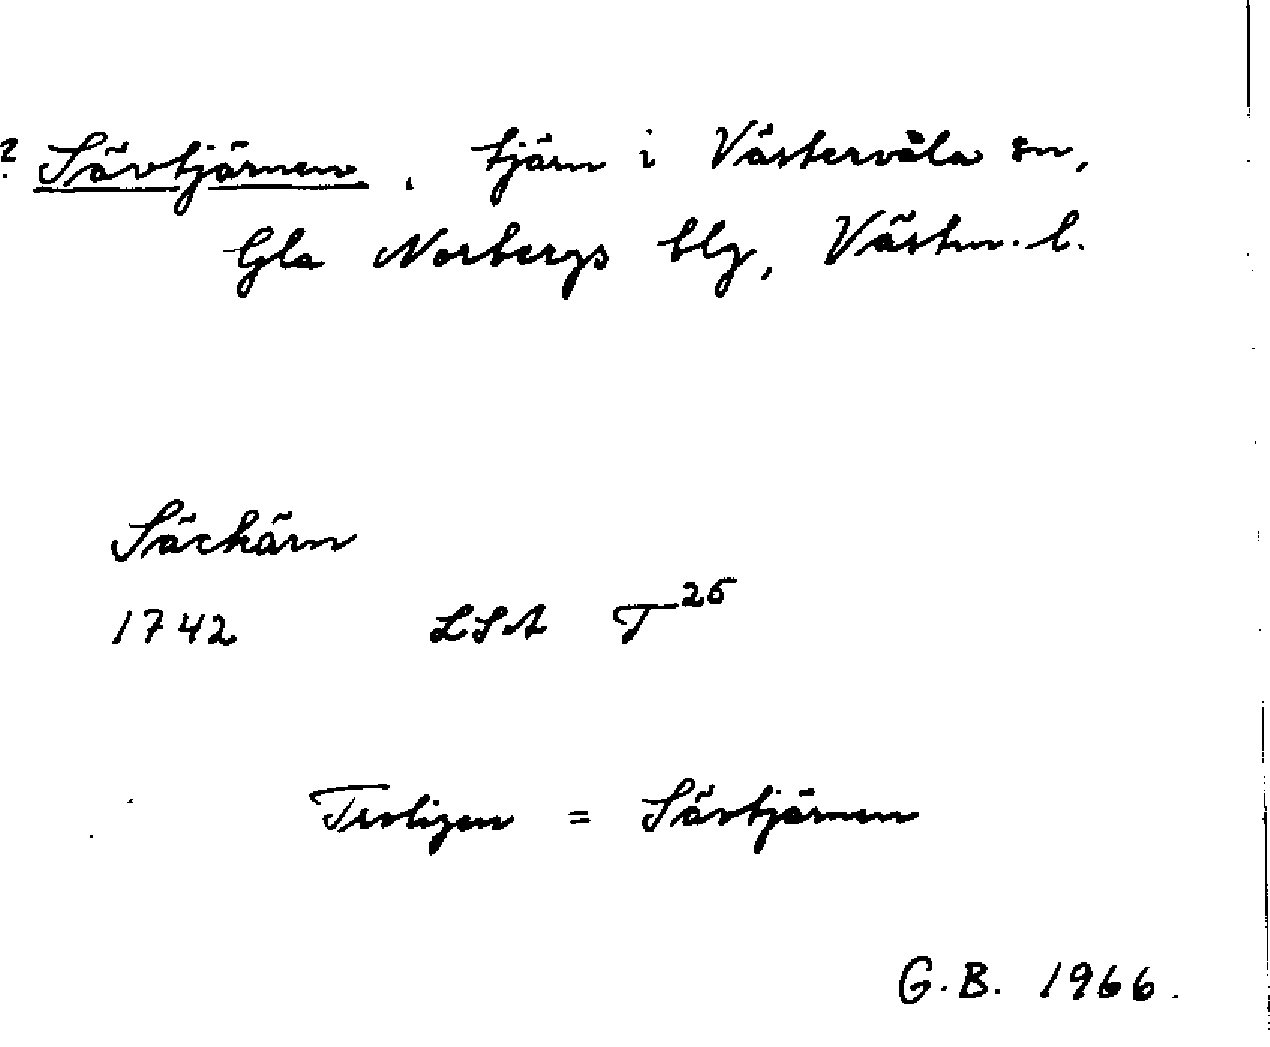 ? Sävtjärnen, tjärn i Västervåla sn,
Gla Norbergs blg, Västm. l.
Säckärn
1742 LSA T 26
Troligen = Sävtjärnen
G.B. 1966.